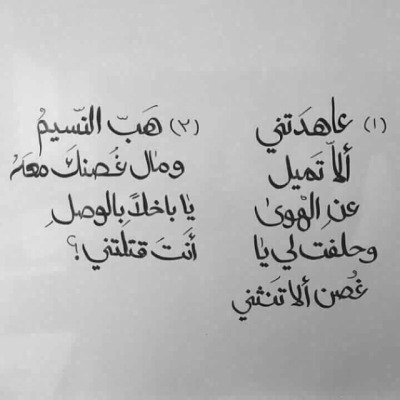 (١) عاهدَتني
ألاّ تَميل
عنِ الهْوىٰ
وحلفت لي يا
غُصن ألا تنثني
(٢) هَبّ النّسيمُ
ومال غُصنكَ معهُ
يا باخلاً بالوصلِ
أنتَ قتلتني؟